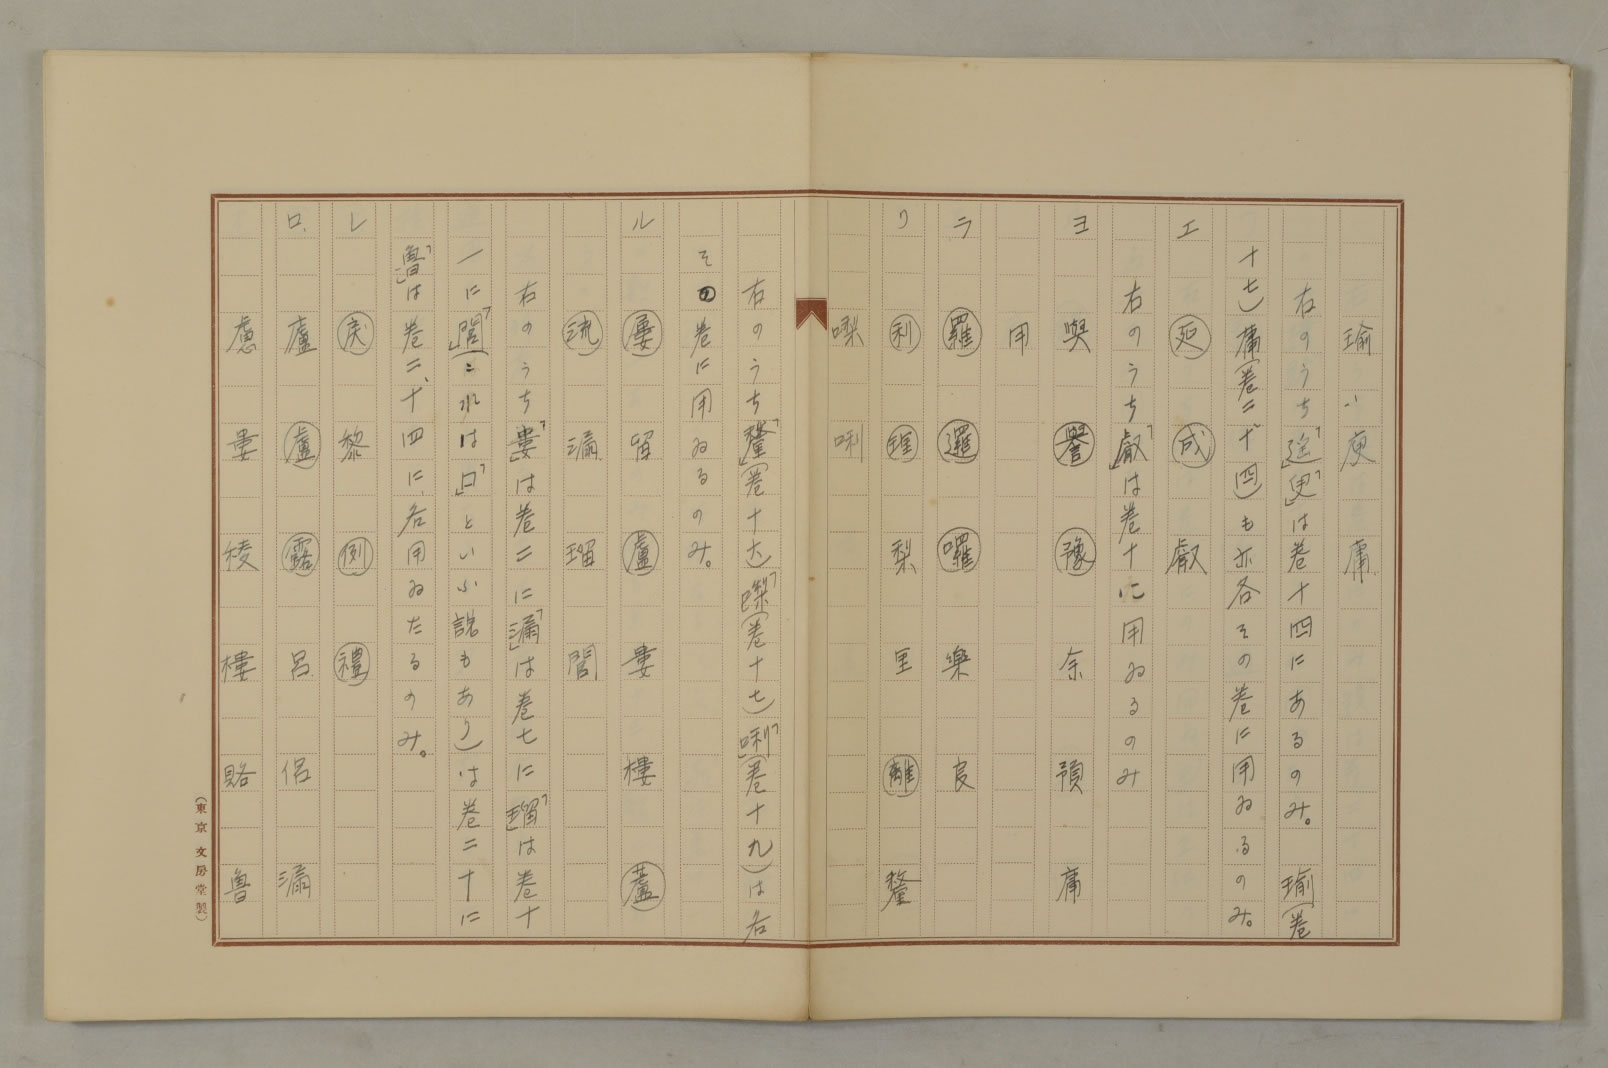 瑜 庾 庸
右のうち「遥」「臾」は巻十四にあるのみ。瑜(巻
十七)庸(巻二十四)も亦各その巻に用ゐるのみ。
エ 延 成 叡
右のうち「叡」は巻十に用ゐるのみ
ヨ 與 譽 豫 余 預 庸
用
ラ 羅 邏 囉 樂 良
リ 利 理 梨 里 離 釐
㗚 唎
右のうち「釐」(巻十六)「㗚」(巻十七)「唎」(巻十九)は各
その巻に用ゐるのみ。
ル 屢 留 盧 婁 樓 蘆
流 漏 瑠 閭
右のうち「婁」は巻二に「漏」は巻七に「瑠」は巻十
一に「閭」(これは「ロ」といふ説もあり)は巻二十に
「魯」は巻二十四に各用ゐたるのみ。
レ 戻 黎 例 禮
ロ 廬 盧 露 呂 侶 漏
慮 婁 稜 樓 賂 魯
(東京 文房堂製)